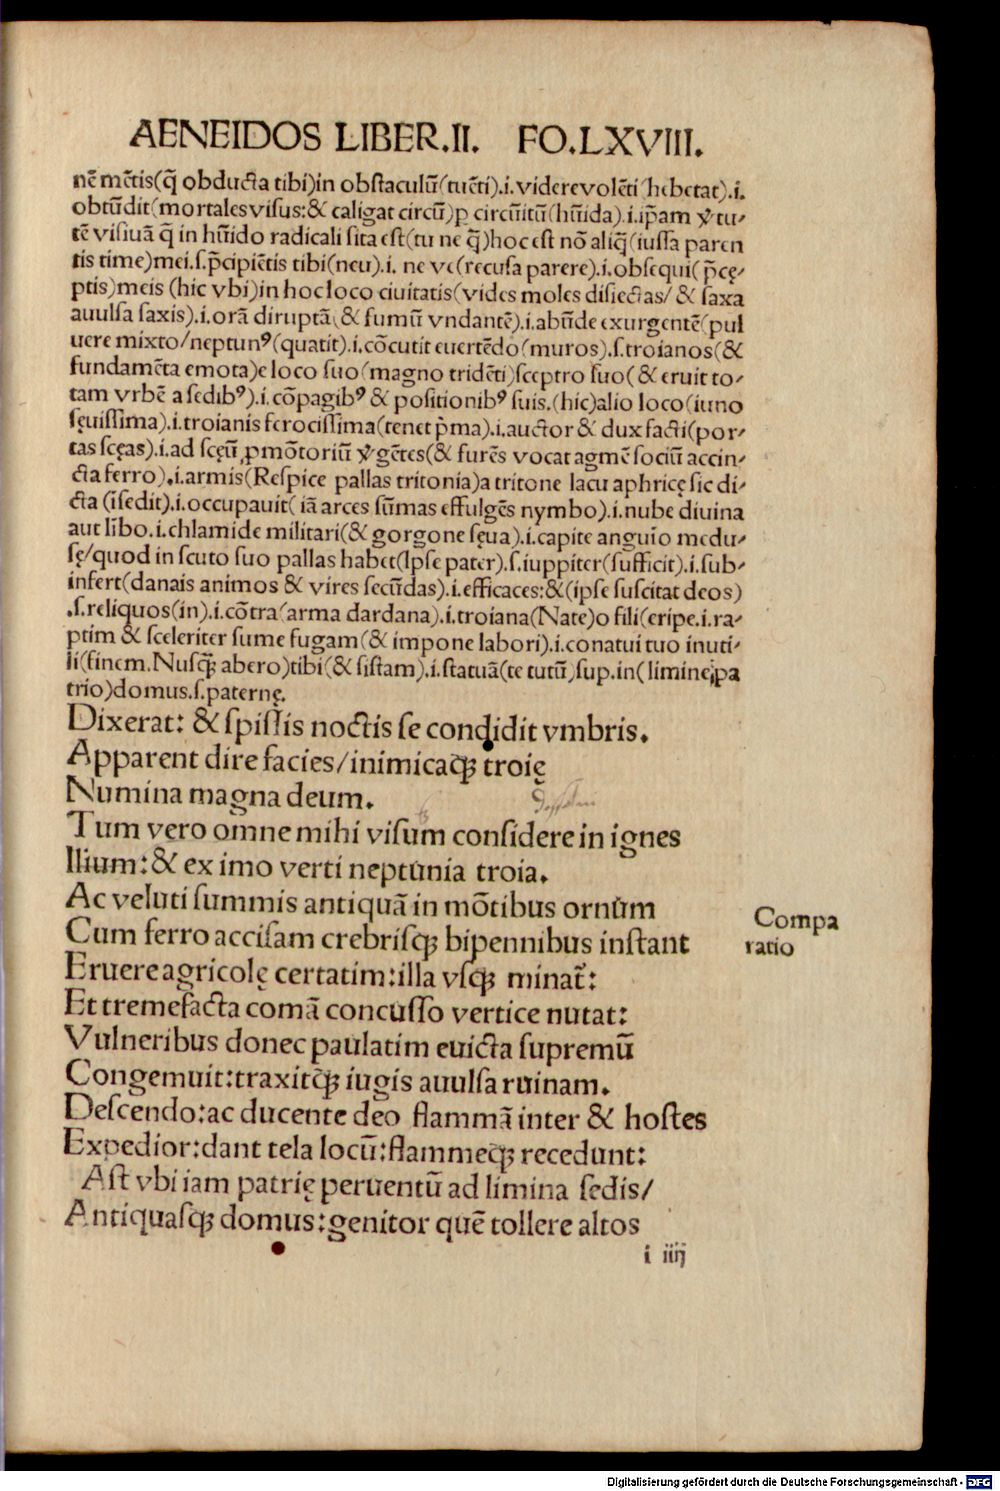 AENEIDOS LIBER.II. FO.LXVIII.
nē mētis(q̄ obducta tibi)in obstaculū(tuēti).i.viderevolēti(hebetat).i.
obtūdit(mortales visus:& caligat circū)ꝑ circūitū(hūida).i.ip̄am v̓tu-
tē visiuā q̄ in hūido radicali sita est(tu ne q̄)hoc est nō aliq̄(iussa paren
tis time)mei.s.p̄cipiētis tibi(neu).i. ne ve(recusa parere).i.obsequi(p̄cę-
ptis)meis (hic vbi)in hoc loco ciuitatis(vides moles disiectas/ & saxa
auulsa saxis).i.orā diruptā(& fumū vndantē).i.abūde exurgentē(pul
uere mixto/neptunꝰ(quatit).i.cōcutit euertēdo(muros).s.troianos(&
fundamēta emota)e loco suo(magno tridēti)sceptro suo(& eruit to-
tam vrbē a sedibꝰ).i.cōpagibꝰ & positionibꝰ suis.(hic)alio loco(iuno
sęuissima).i.troianis ferocissima(tenet p̄ma).i.auctor & dux facti(por-
tas scęas).i.ad scęū ꝓmōtoriū v̓gētes(& furēs vocat agmē sociū accin-
cta ferro).i.armis(Respice pallas tritonia)a tritone lacu aphricę sic di-
cta (īsedit).i.occupauit( iā arces sūmas effulgēs nymbo).i.nube diuina
aut limbo.i.chlamide militari(& gorgone sęua).i.capite anguīo medu-
sę/quod in scuto suo pallas habet(Ipse pater).s.iuppiter(sufficit).i.sub-
infert(danais animos & vires secūdas).i.efficaces:&(ipse suscitat deos)
.s.reliquos(in).i.cōtra(arma dardana).i.troiana(Nate)o fili(eripe.i.ra-
ptim & sceleriter sume fugam(& impone labori).i.conatui tuo inuti-
li(finem.Nusq̄ abero)tibi(& sistam).i.statuā(te tutū)sup.in(limine pa
trio)domus.s.paternę.
Dixerat: & spissis noctis se condidit vmbris.
Apparent dire facies/inimicaqꝫ troię
Numina magna deum.
Tum vero omne mihi visum considere in ignes
Ilium:& ex imo verti neptunia troia.
Ac veluti summis antiquā in mōtibus ornum
Cum ferro accisam crebrisqꝫ bipennibus instant
Compa
ratio
Eruere agricolę certatim:illa vsqꝫ minat̄:
Et tremefacta comā concusso vertice nutat:
Vulneribus donec paulatim euicta supremū
Congemuit:traxitqꝫ iugis auulsa ruinam.
Descendo:ac ducente deo flammā inter & hostes
Expedior:dant tela locū:flammeqꝫ recedunt:
Ast vbi iam patrię peruentū ad limina sedis/
Antiquasqꝫ domus:genitor quē tollere altos
i iiij
Digitalisierung gefördert durch die Deutsche Forschungsgemeinschaft - DFG